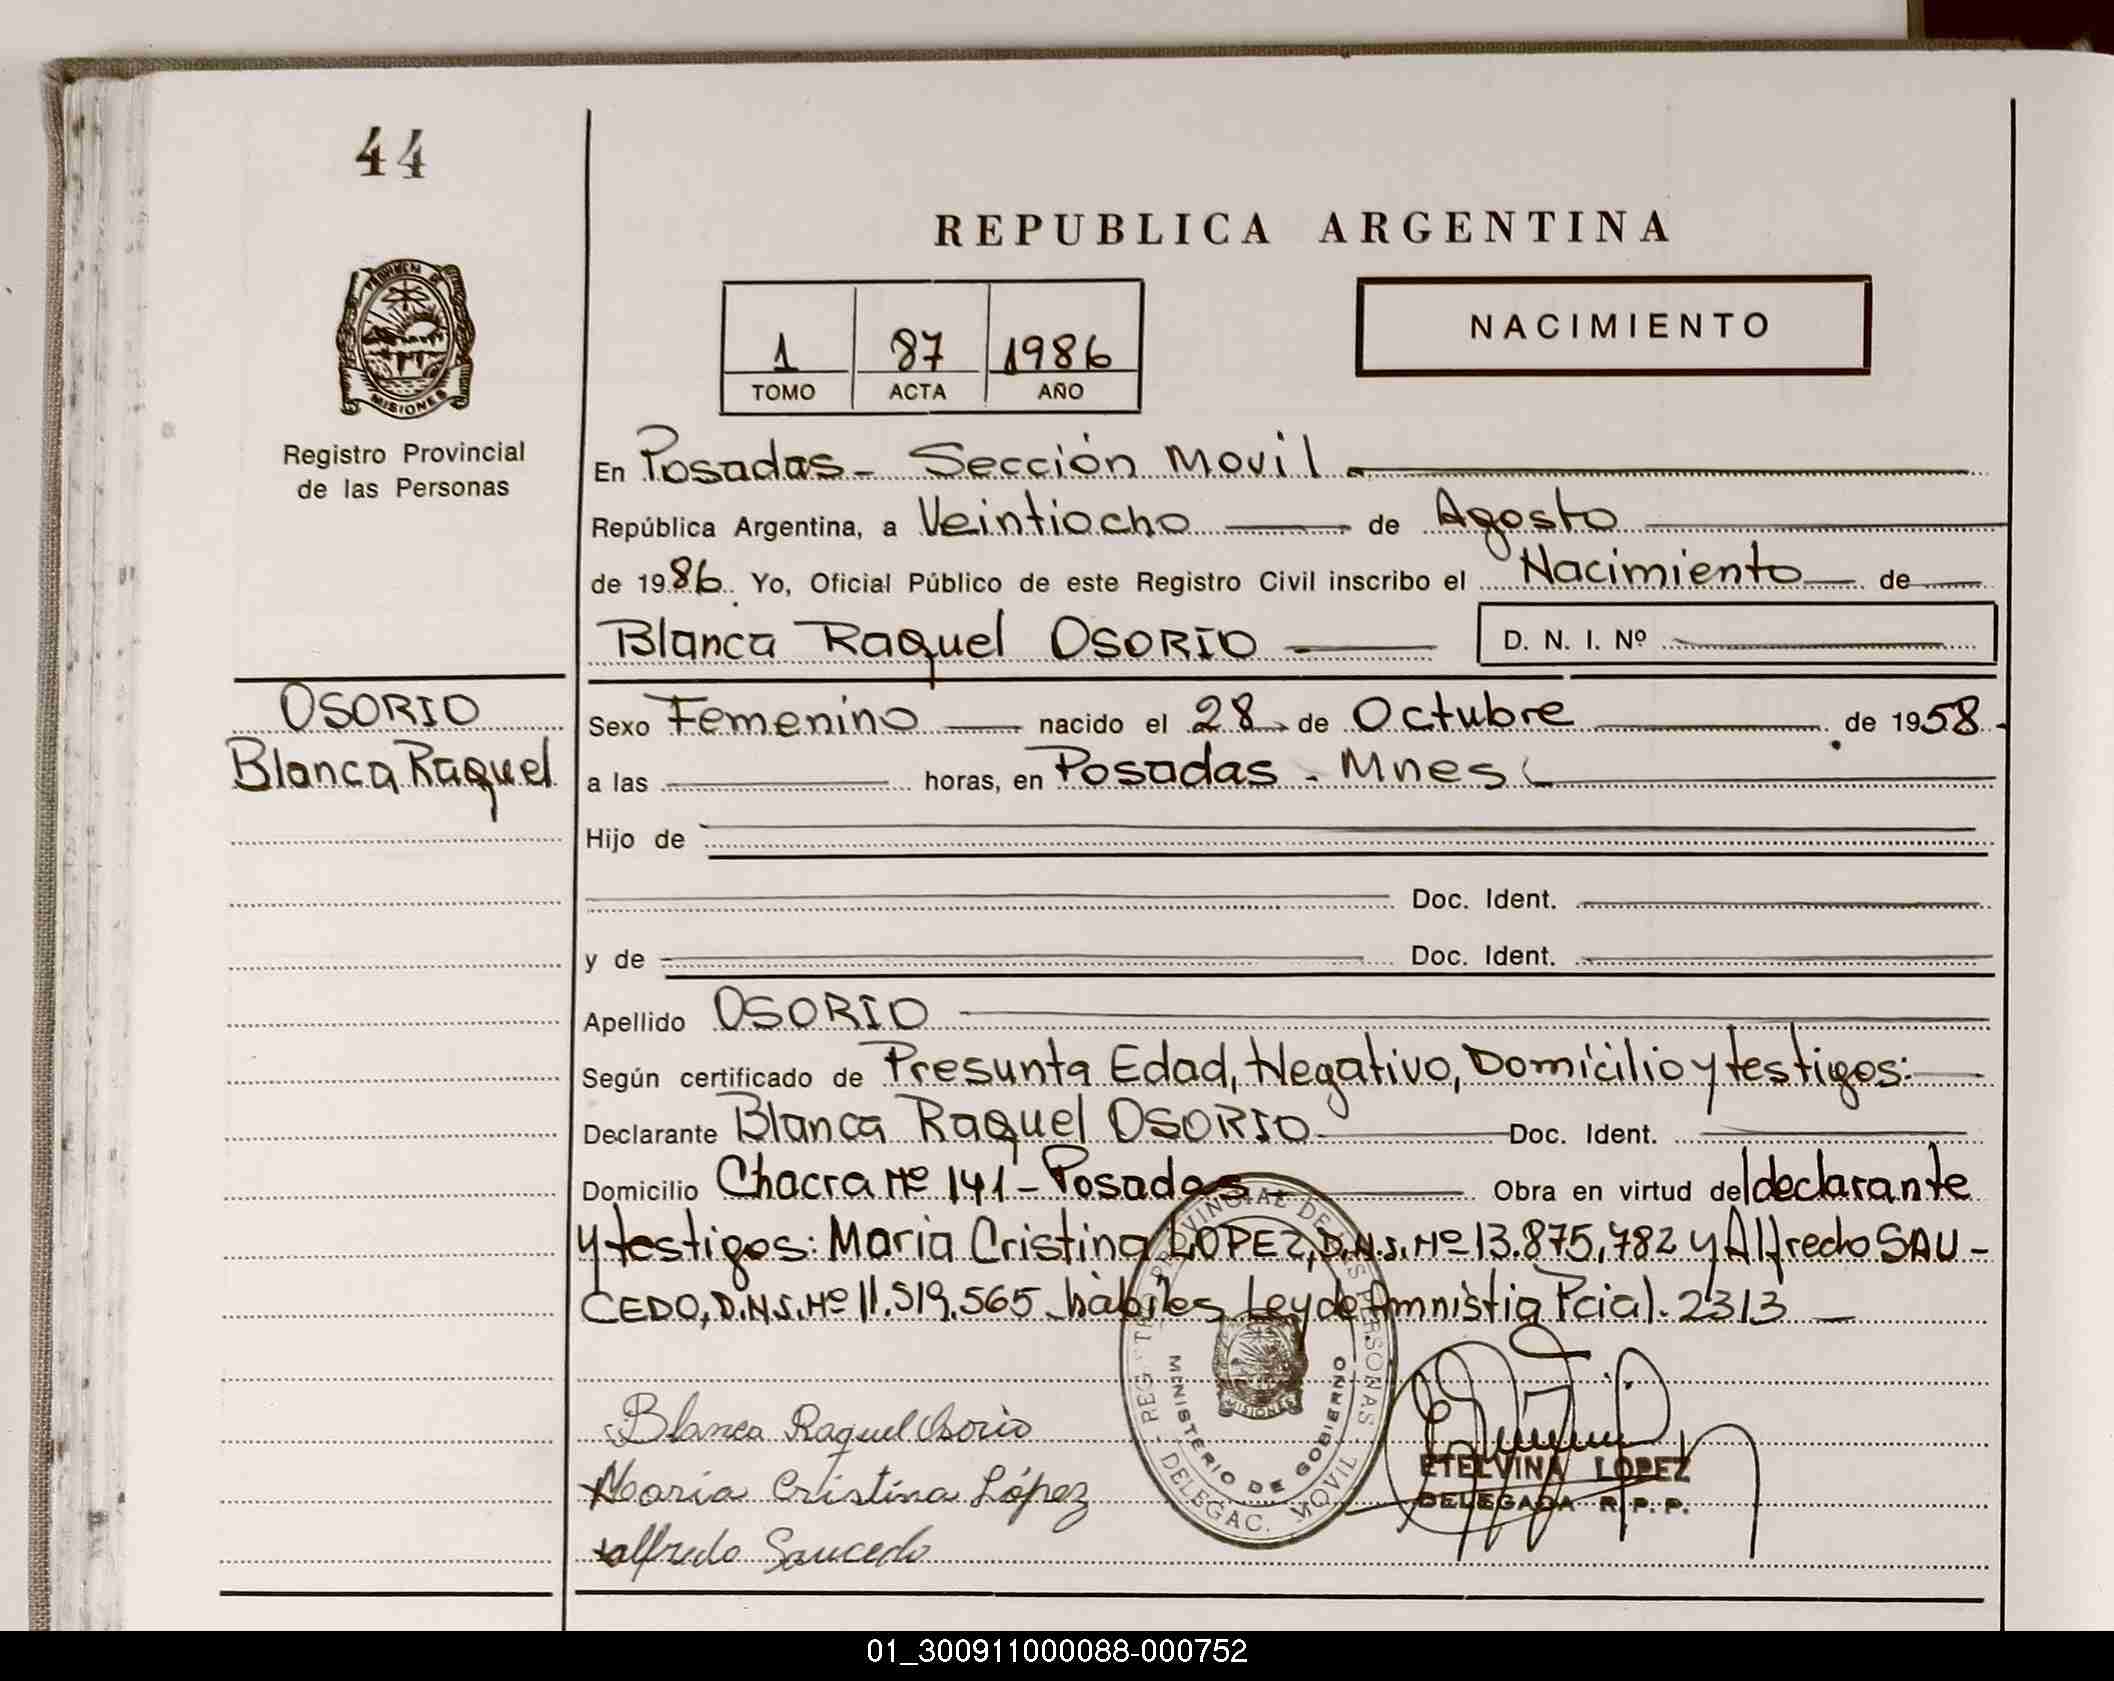 44
REPUBLICA ARGENTINA
PROVINCIA DE
MISIONES
Registro Provincial
de las Personas
1 87 1986
TOMO ACTA AÑO
NACIMIENTO
En Posadas - Sección Movil
República Argentina, a Veintiocho de Agosto
de 1986. Yo, Oficial Público de este Registro Civil inscribo el Nacimiento de
Blanca Raquel OSORIO D. N. I. Nº
OSORIO
Blanca Raquel
Sexo Femenino nacido el 28 de Octubre de 1958.-
a las horas, en Posadas - Mnes.
Hijo de
Doc. Ident.
y de Doc. Ident.
Apellido OSORIO
Según certificado de Presunta Edad, Negativo, Domicilio y testigos:
Declarante Blanca Raquel OSORIO Doc. Ident.
Domicilio Chacra Nº 141 - Posadas Obra en virtud del declarante
y testigos: Maria Cristina LOPEZ, D.N.I. Nº 13.875.782 y Alfredo SAU-
CEDO, D.N.I. Nº 11.519.565 hábiles Ley de Amnistia Pcial. 2313
REGISTRO PROVINCIAL DE LAS PERSONAS
MINISTERIO DE GOBIERNO
MISIONES
DELEGAC. MOVIL
Blanca Raquel Osorio
Maria Cristina López
Alfredo Saucedo
ETELVINA LOPEZ
DELEGADA R. P. P.
01_300911000088-000752